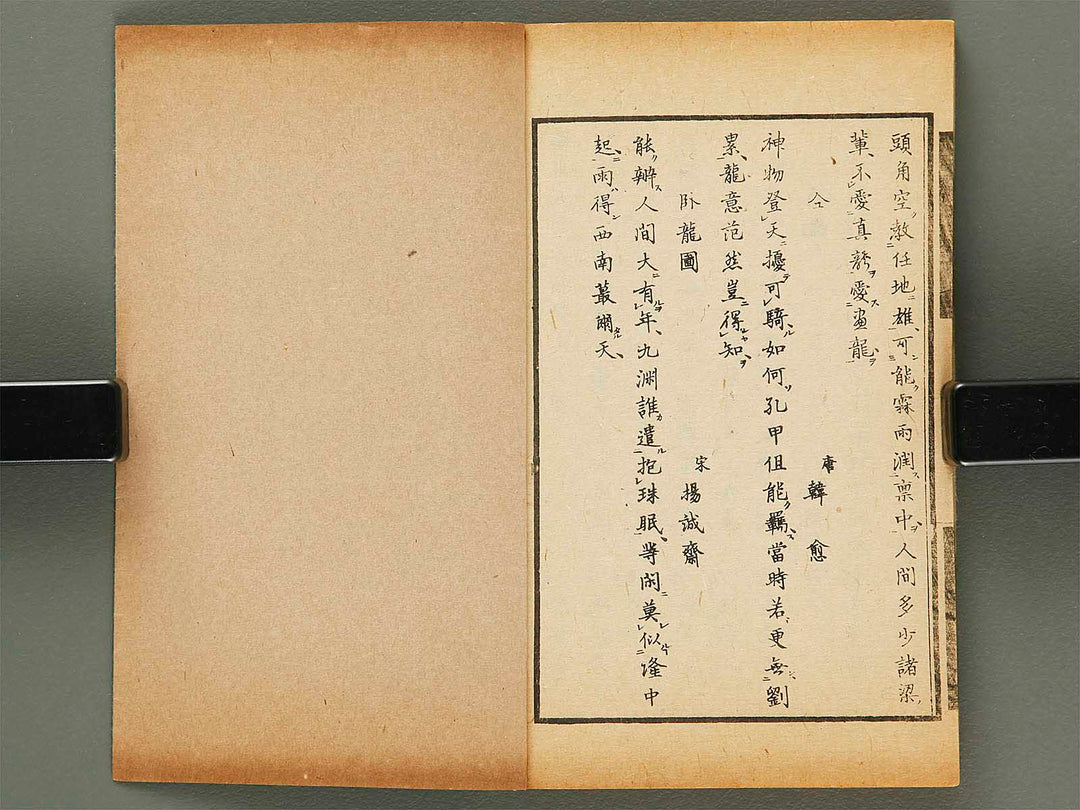 頭角空教任地雄可能霖雨潤禀中人間多少諸梁
輩不愛真龍愛畫龍
仝
唐 韓愈
神物登天擾可騎如何孔甲但能羈當時若更無劉
累龍意茫然豈得知
卧龍圖
宋 揚誠齋
能辨人間大有年九淵誰遣抱珠眠等閑莫似隆中
起雨得西南蕞爾天